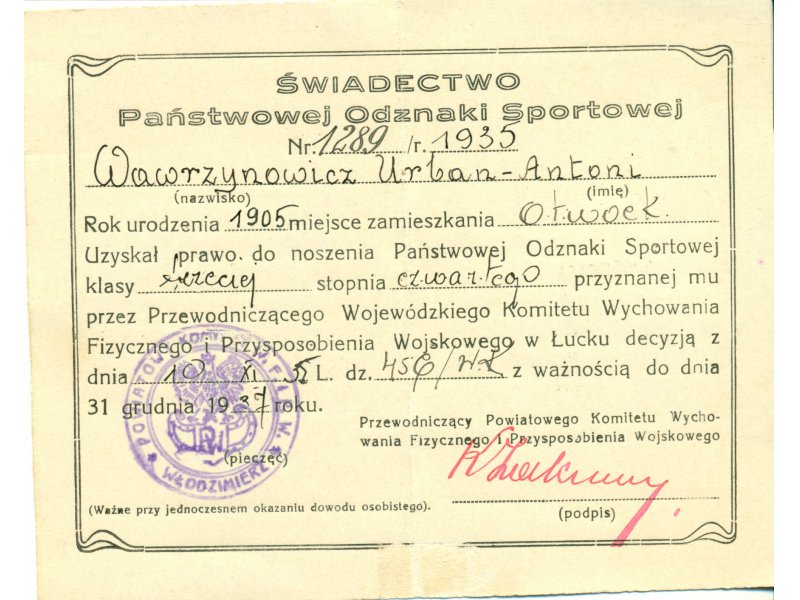 ŚWIADECTWO
Państwowej Odznaki Sportowej
Nr. 1289 /r. 1935
Wawrzynowicz Urban-Antoni
(nazwisko) (imię)
Rok urodzenia 1905 miejsce zamieszkania Otwock.
Uzyskał prawo do noszenia Państwowej Odznaki Sportowej
klasy trzeciej stopnia czwartego przyznanej mu
przez Przewodniczącego Wojewódzkiego Komitetu Wychowania
Fizycznego i Przysposobienia Wojskowego w Łucku decyzją z
dnia 10 XI 35 L. dz. 456/ z ważnością do dnia
31 grudnia 1937 roku.
Przewodniczący Powiatowego Komitetu Wycho-
wania Fizycznego i Przysposobienia Wojskowego
(pieczęć)
WŁODZIMIERZ
(Ważne przy jednoczesnem okazaniu dowodu osobistego).
(podpis)